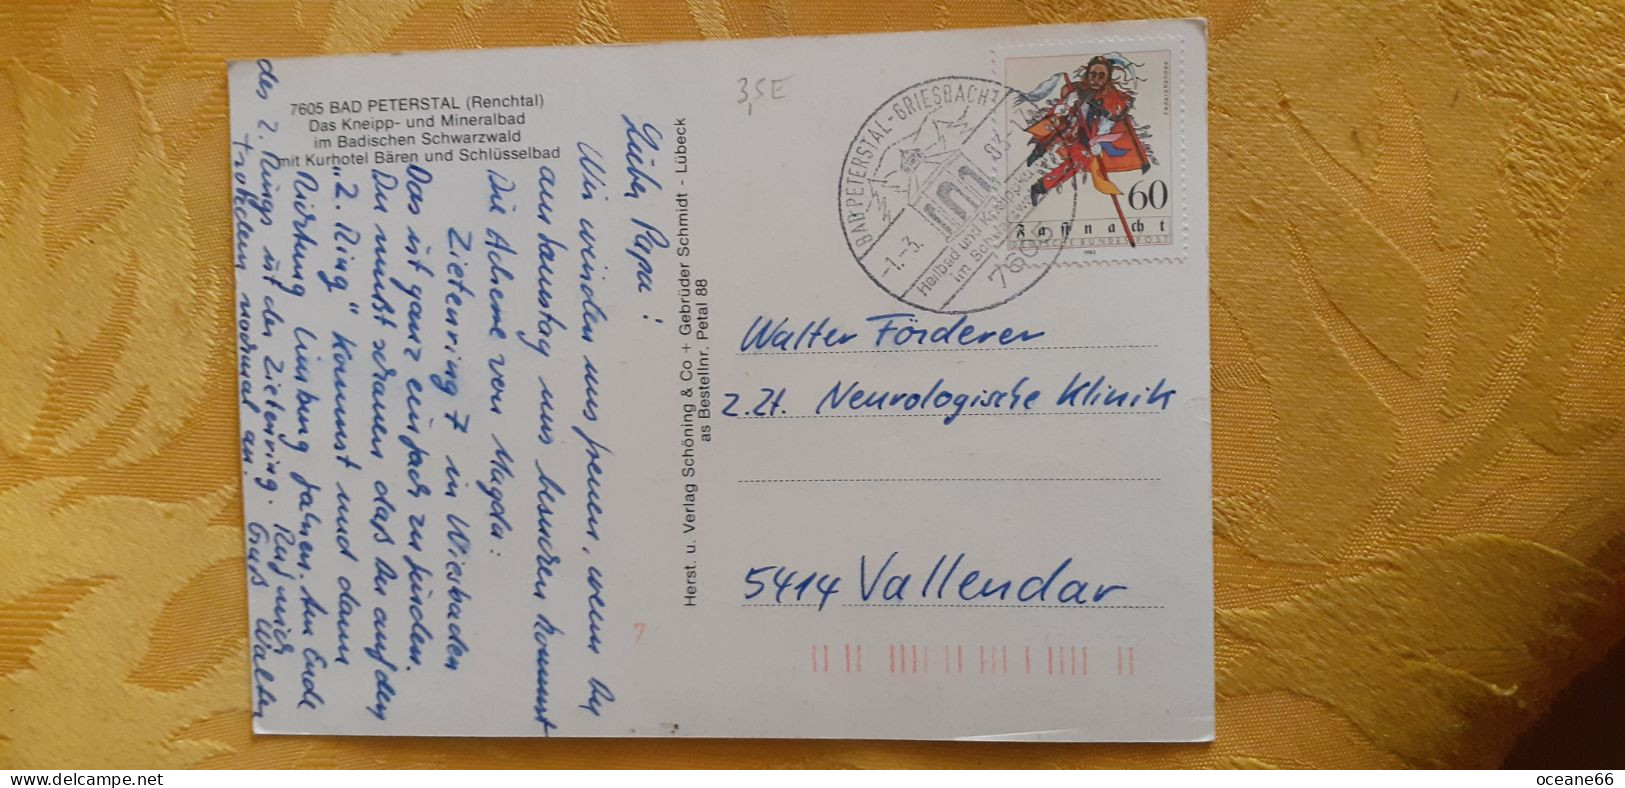 7605 BAD PETERSTAL (Renchtal)
Das Kneipp- und Mineralbad
im Badischen Schwarzwald
mit Kurhotel Bären und Schlüsselbad
Lieber Papa!
Wir würden uns freuen, wenn Du
am Samstag uns besuchen kommst
Die Adresse von Magda:
Zietenring 7 in Wiesbaden
Das ist ganz einfach zu finden.
Du mußt schauen daß Du auf den
"2. Ring" kommst und dann
Richtung Limburg fahren. Am Ende
des 2. Rings ist der Zietenring. Ruf mich
trotzdem nochmal an. Gruß Walter
Herst. u. Verlag Schöning & Co + Gebrüder Schmidt - Lübeck
as Bestellnr. Petal 88
3,5E
BAD PETERSTAL-GRIESBACH 1
-1.-3. 83-17
Heilbad und Kneippkurort
im Schwarzwald
7605
Federahannes
60
Fastnacht
DEUTSCHE BUNDESPOST
1983
Walter Förderer
z.Zt. Neurologische Klinik
5414 Vallendar
7
oceane66